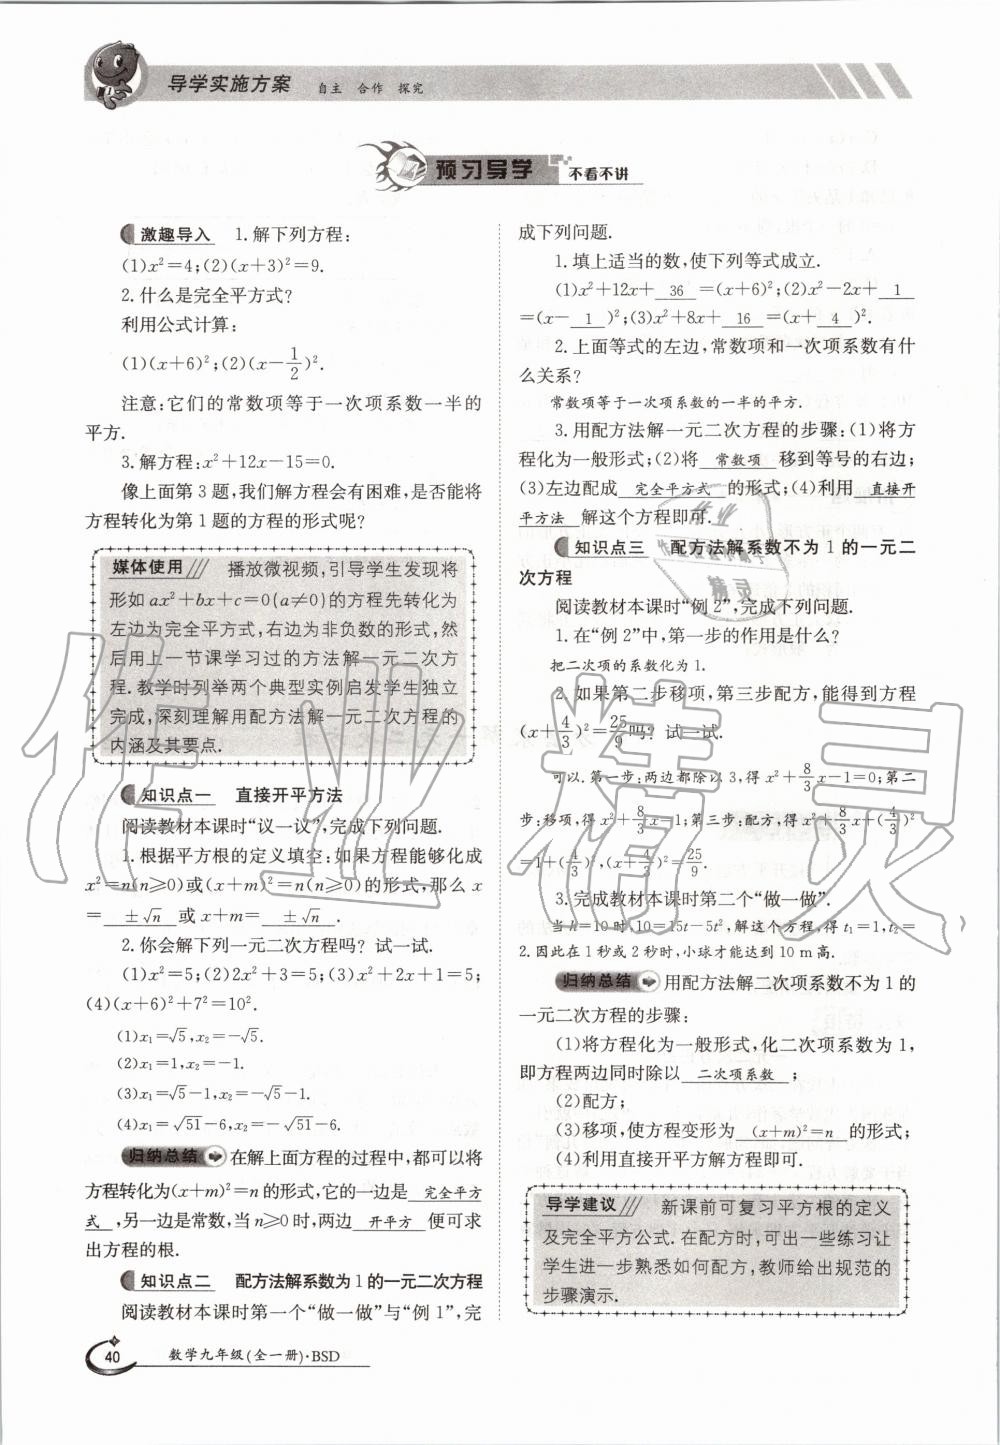 导学实施方案 自主 合作 探究
预习导学 不看不讲
激趣导入 1.解下列方程:
(1)x²=4;(2)(x+3)²=9.
2.什么是完全平方式?
利用公式计算:
(1)(x+6)²;(2)(x-1/2)².
注意:它们的常数项等于一次项系数一半的
平方.
3.解方程:x²+12x-15=0.
像上面第3题,我们解方程会有困难,是否能将
方程转化为第1题的方程的形式呢?
媒体使用 播放微视频,引导学生发现将
形如ax²+bx+c=0(a≠0)的方程先转化为
左边为完全平方式,右边为非负数的形式,然
后用上一节课学习过的方法解一元二次方
程.教学时列举两个典型实例启发学生独立
完成,深刻理解用配方法解一元二次方程的
内涵及其要点.
知识点一 直接开平方法
阅读教材本课时“议一议”,完成下列问题.
1.根据平方根的定义填空:如果方程能够化成
x²=n(n≥0)或(x+m)²=n(n≥0)的形式,那么x
= ±√n 或x+m= ±√n .
2.你会解下列一元二次方程吗? 试一试.
(1)x²=5;(2)2x²+3=5;(3)x²+2x+1=5;
(4)(x+6)²+7²=10².
(1)x₁=√5,x₂=-√5.
(2)x₁=1,x₂=-1.
(3)x₁=√5-1,x₂=-√5-1.
(4)x₁=√51-6,x₂=-√51-6.
归纳总结 在解上面方程的过程中,都可以将
方程转化为(x+m)²=n的形式,它的一边是 完全平方
式 ,另一边是常数,当n≥0时,两边 开平方 便可求
出方程的根.
知识点二 配方法解系数为1的一元二次方程
阅读教材本课时第一个“做一做”与“例1”,完
成下列问题.
1.填上适当的数,使下列等式成立.
(1)x²+12x+ 36 =(x+6)²;(2)x²-2x+ 1
=(x- 1 )²;(3)x²+8x+ 16 =(x+ 4 )².
2.上面等式的左边,常数项和一次项系数有什
么关系?
常数项等于一次项系数的一半的平方.
3.用配方法解一元二次方程的步骤:(1)将方
程化为一般形式;(2)将 常数项 移到等号的右边;
(3)左边配成 完全平方式 的形式;(4)利用 直接开
平方法 解这个方程即可.
知识点三 配方法解系数不为1的一元二
次方程
阅读教材本课时“例2”,完成下列问题.
1.在“例2”中,第一步的作用是什么?
把二次项的系数化为1.
2.如果第二步移项,第三步配方,能得到方程
(x+4/3)²=25/9吗? 试一试.
可以.第一步:两边都除以3,得x²+8/3x-1=0;第二
步:移项,得x²+8/3x=1;第三步:配方,得x²+8/3x+(4/3)²
=1+(4/3)²,(x+4/3)²=25/9.
3.完成教材本课时第二个“做一做”.
当h=10时,10=15t-5t²,解这个方程,得t₁=1,t₂=
2.因此在1秒或2秒时,小球才能达到10 m高.
归纳总结 用配方法解二次项系数不为1的
一元二次方程的步骤:
(1)将方程化为一般形式,化二次项系数为1,
即方程两边同时除以 二次项系数 ;
(2)配方;
(3)移项,使方程变形为 (x+m)²=n 的形式;
(4)利用直接开平方解方程即可.
导学建议 新课前可复习平方根的定义
及完全平方公式.在配方时,可出一些练习让
学生进一步熟悉如何配方,教师给出规范的
步骤演示.
40 数学九年级(全一册)·BSD
作业精灵